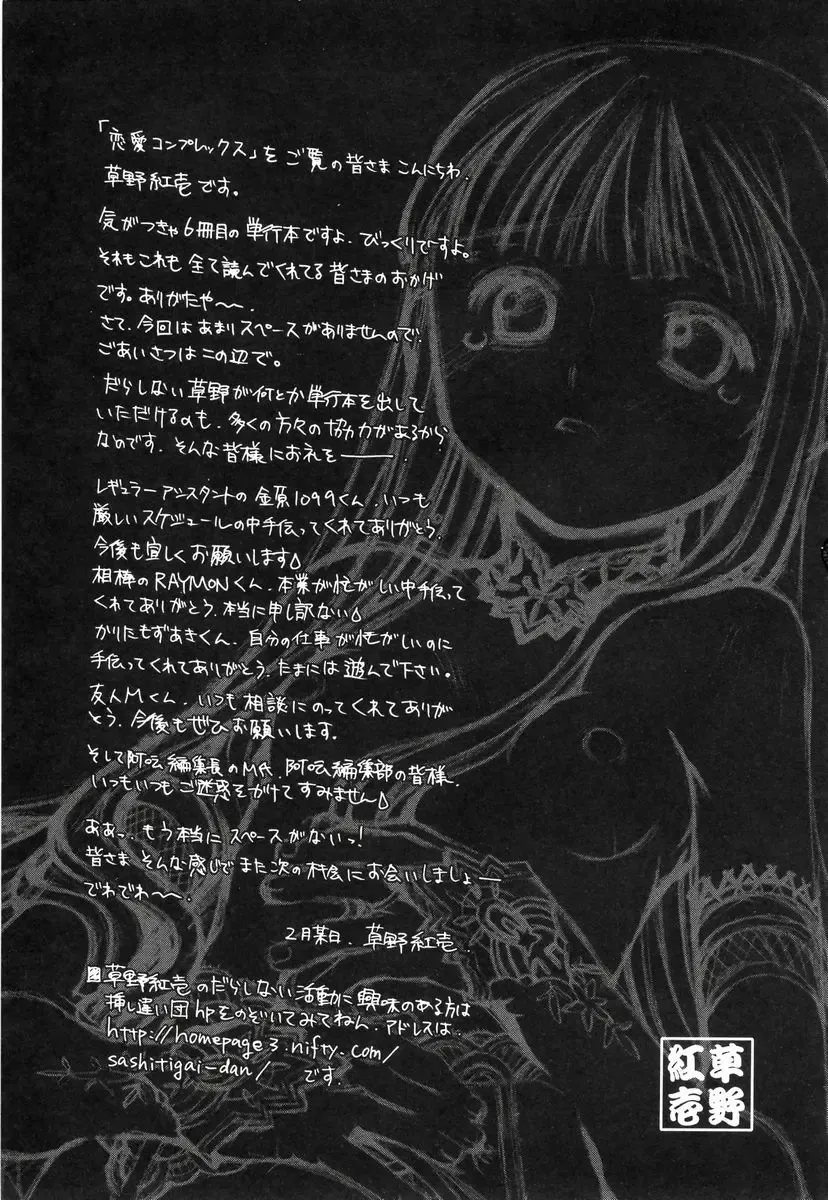 「恋愛コンプレックス」をご覧の皆さまこんにちわ.
草野紅壱です。
気がつきゃ6冊目の単行本ですよ. びっくりですよ。
それもこれも全て読んでくれてる皆さまのおかげ
です。ありがたや〜〜.
さて、今回はあまりスペースがありませんので、
ごあいさつはこの辺で。
だらしない草野が何とか単行本を出して
いただけるのも、多くの方々の協力があるから
なのです. そんな皆様にお礼を――.
レギュラーアシスタントの金原1099くん. いつも
厳しいスケジュールの中手伝ってくれてありがとう.
今後も宜しくお願いします△
相棒のRAYMONくん. 本業が忙がしい中手伝って
くれてありがとう. 本当に申し訳ない△
かりたもずあきくん. 自分の仕事が忙がしいのに
手伝ってくれてありがとう. たまには遊んで下さい。
友人Mくん. いつも相談にのってくれてありが
とう. 今後もぜひお願いします.
そして阿吽編集長のM氏. 阿吽編集部の皆様.
いつもいつもご迷惑をかけてすみません△
ああっ. もう本当にスペースがないっ!
皆さまそんな感じでまた次の機会にお会いしましょー
でわでわ〜〜.
2月某日. 草野紅壱.
草野紅壱のだらしない活動に興味のある方は
挿し違い団hpをのぞいてみてねん. アドレスは.
http://homepage3.nifty.com/
sashitigai-dan/ です.
草野
紅壱